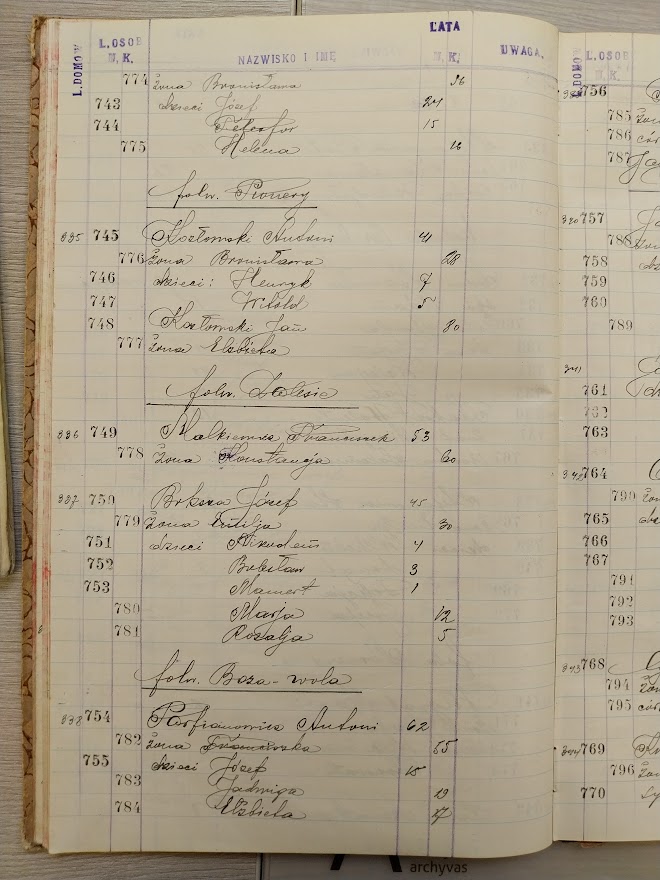 L. DOMÓW L. OSÓB M. K. NAZWISKO I IMĘ LATA M. K. UWAGA.
774 żona Bronisława 36
743 dzieci Józef 24
744 15
775 Helena 16
folw. Pionery
335 745 Kozłowski Antoni 41
776 żona Bronisława 28
746 dzieci: Henryk 7
747 Witold 5
748 Kozłowski Jan 80
777 żona Elżbieta
folw. Zalesie
336 749 Malkiewicz Franciszek 53
778 żona Konstancja 60
337 750 Józef 45
779 żona 30
751 dzieci Nikodem 4
752 Bolesław 3
753 Mamert 1
780 Marja 12
781 Rozalja 5
folw. Boża-wola
338 754 Parfianowicz Antoni 62
782 żona Franciszka 55
755 dzieci Józef 15
783 Jadwiga 19
784 Elżbieta 17
L. DOMÓW L. OSÓB M. K.
756
785 żona
786 cór
787
757
788 żona
758
759
760
789
341
761
762
763
342 764
790
765
766
767
791
792
793
343 768
794
795 cór
344 769
796
770
archyvas